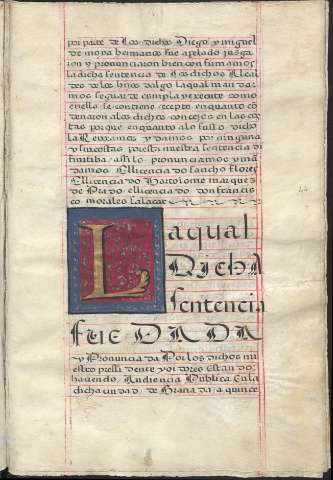 por parte de Los dichos Diego y miguel
de moya hermanos fue apelado juzga
ron y pronunciaron bien confirmamos
la dicha sentencia de Los dichos Alcal
des de los hijos dalgo la qual man da
mos se guar de cumpla y execute como
en ella se contiene eçepto en quanto cõ
denaron a los dichos conçejos en las cos
tas por que en quanto a lo suso dicho
la Revocamos y damos por ninguna
y sin costas por esta nuestra sentencia di
finitiba assi lo pronunciamos y mã
damos El licençia do sancho flores
El licençia do Bartolome marques
de Prado el licençia do don françis
co morales salaçar
La qual
DICHA
sentencia
FUE DADA
y Pronuncia da Por los dichos nu
estro presi dente y oi dores estan do
haciendo Audiencia Publica En la
dicha ciu da d de Grana da a quince